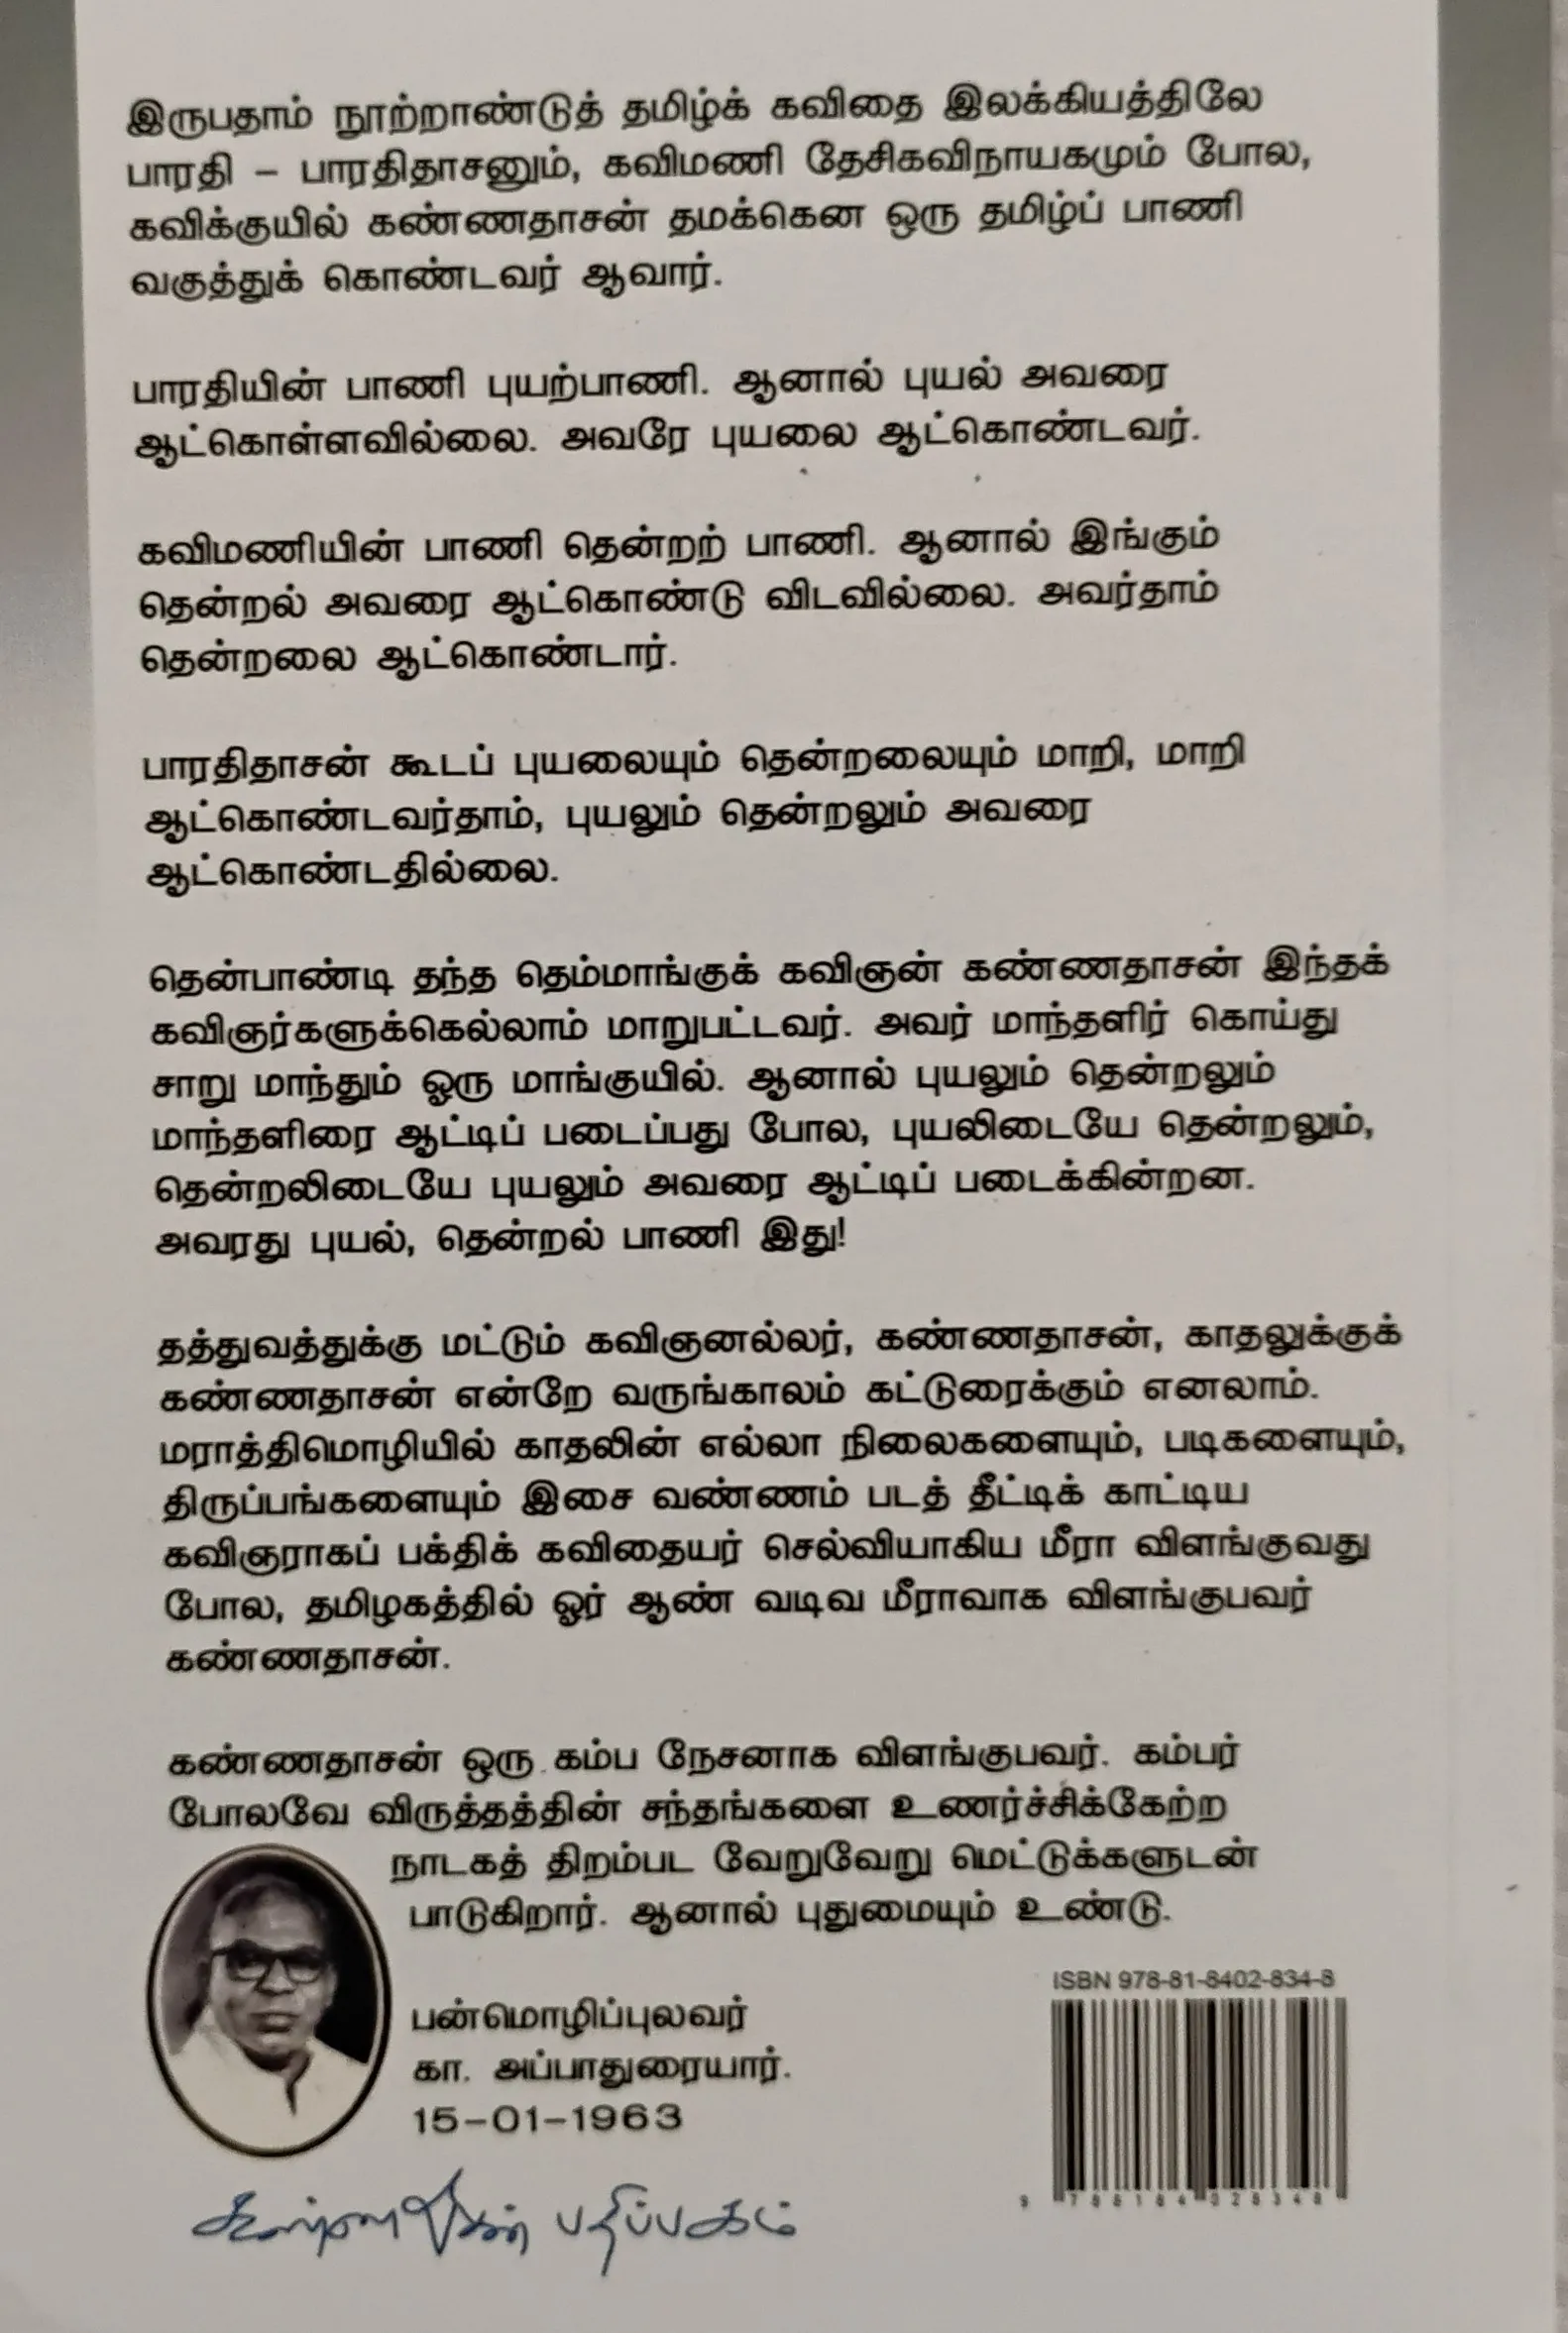 இருபதாம் நூற்றாண்டுத் தமிழ்க் கவிதை இலக்கியத்திலே
பாரதி – பாரதிதாசனும், கவிமணி தேசிகவிநாயகமும் போல,
கவிக்குயில் கண்ணதாசன் தமக்கென ஒரு தமிழ்ப் பாணி
வகுத்துக் கொண்டவர் ஆவார்.
பாரதியின் பாணி புயற்பாணி. ஆனால் புயல் அவரை
ஆட்கொள்ளவில்லை. அவரே புயலை ஆட்கொண்டவர்.
கவிமணியின் பாணி தென்றற் பாணி. ஆனால் இங்கும்
தென்றல் அவரை ஆட்கொண்டு விடவில்லை. அவர்தாம்
தென்றலை ஆட்கொண்டார்.
பாரதிதாசன் கூடப் புயலையும் தென்றலையும் மாறி, மாறி
ஆட்கொண்டவர்தாம், புயலும் தென்றலும் அவரை
ஆட்கொண்டதில்லை.
தென்பாண்டி தந்த தெம்மாங்குக் கவிஞன் கண்ணதாசன் இந்தக்
கவிஞர்களுக்கெல்லாம் மாறுபட்டவர். அவர் மாந்தளிர் கொய்து
சாறு மாந்தும் ஒரு மாங்குயில். ஆனால் புயலும் தென்றலும்
மாந்தளிரை ஆட்டிப் படைப்பது போல, புயலிடையே தென்றலும்,
தென்றலிடையே புயலும் அவரை ஆட்டிப் படைக்கின்றன.
அவரது புயல், தென்றல் பாணி இது!
தத்துவத்துக்கு மட்டும் கவிஞனல்லர், கண்ணதாசன், காதலுக்குக்
கண்ணதாசன் என்றே வருங்காலம் கட்டுரைக்கும் எனலாம்.
மராத்திமொழியில் காதலின் எல்லா நிலைகளையும், படிகளையும்,
திருப்பங்களையும் இசை வண்ணம் படத் தீட்டிக் காட்டிய
கவிஞராகப் பக்திக் கவிதையர் செல்வியாகிய மீரா விளங்குவது
போல, தமிழகத்தில் ஓர் ஆண் வடிவ மீராவாக விளங்குபவர்
கண்ணதாசன்.
கண்ணதாசன் ஒரு கம்ப நேசனாக விளங்குபவர். கம்பர்
போலவே விருத்தத்தின் சந்தங்களை உணர்ச்சிக்கேற்ற
நாடகத் திறம்பட வேறுவேறு மெட்டுக்களுடன்
பாடுகிறார். ஆனால் புதுமையும் உண்டு.
பன்மொழிப்புலவர்
கா. அப்பாதுரையார்.
15-01-1963
ISBN 978-81-8402-834-8
9 788184 028348
கண்ணதாசன் பதிப்பகம்